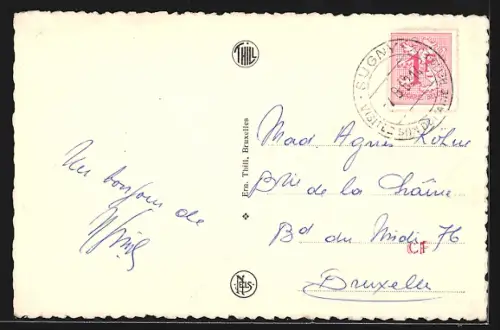 THILL
Un bonjour de
Ern. Thill, Bruxelles
NELS
SUGNY
VISITEZ SON
1F
Mad. Agnes Köhne
de la Chaîne
Bd du Midi 76
CF
Bruxelles